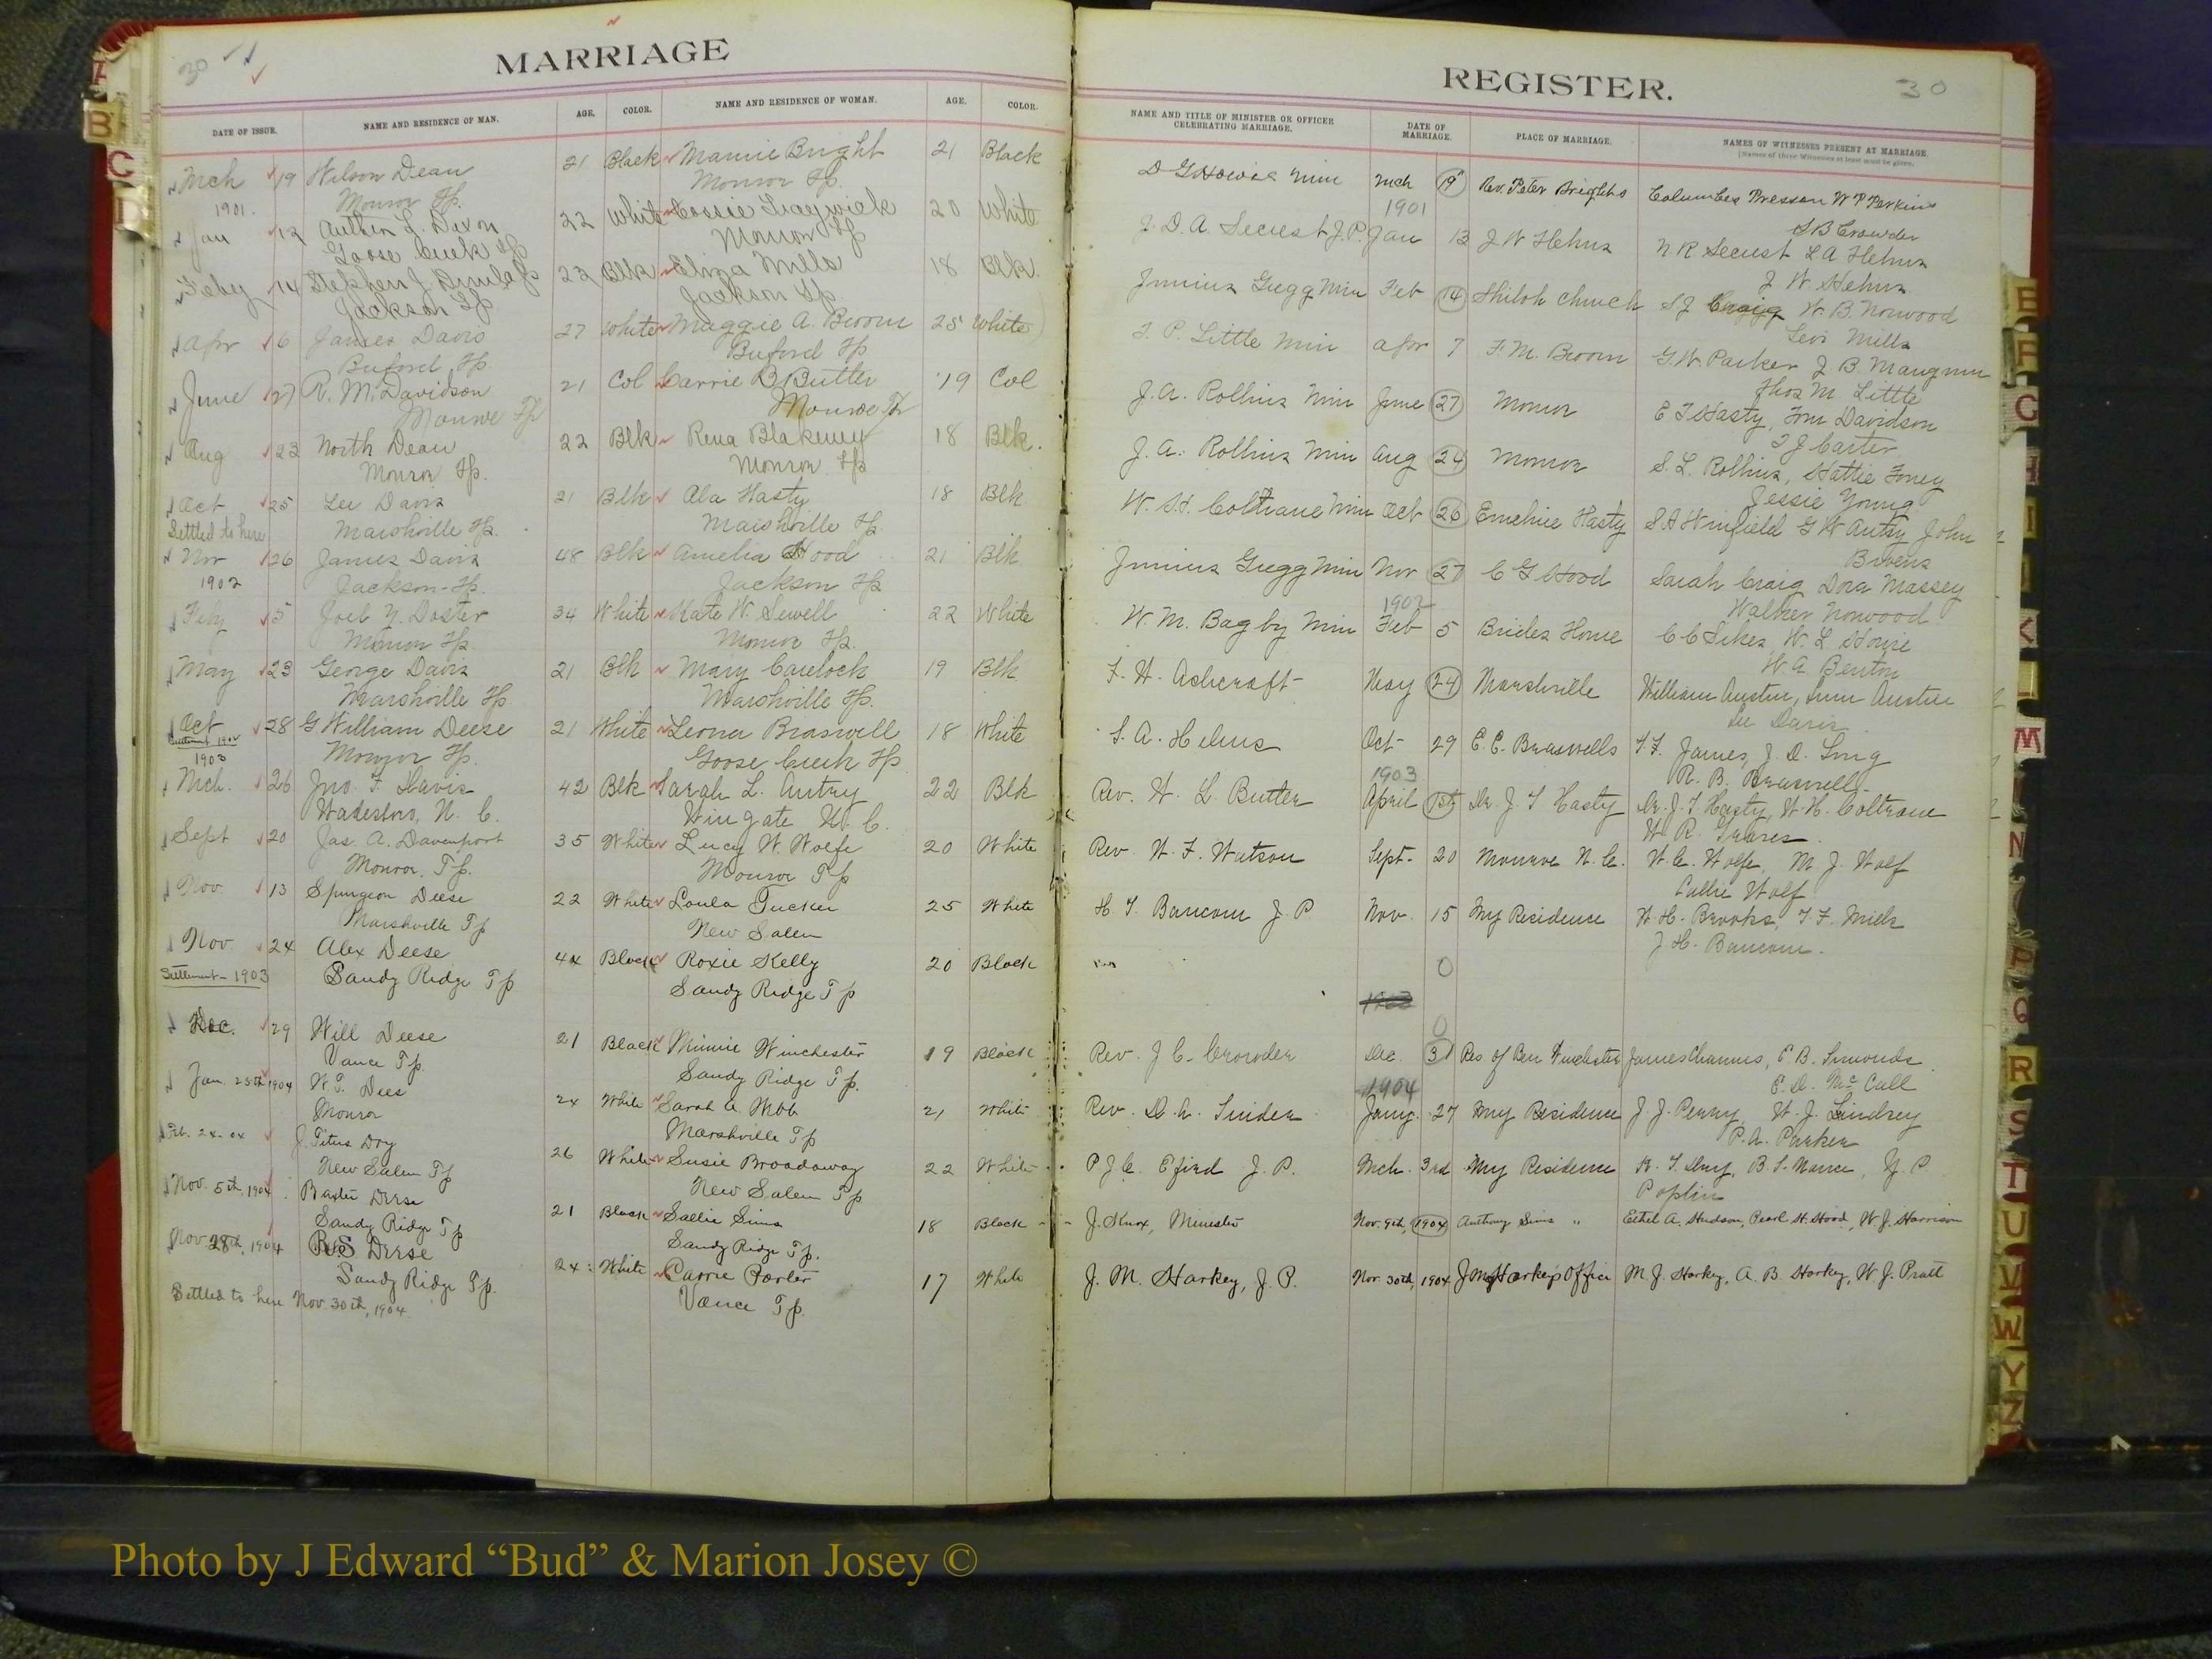 MARRIAGE
REGISTER.
30
30
DATE OF ISSUE. NAME AND RESIDENCE OF MAN. AGE. COLOR. NAME AND RESIDENCE OF WOMAN. AGE. COLOR. NAME AND TITLE OF MINISTER OR OFFICER CELEBRATING MARRIAGE. DATE OF MARRIAGE. PLACE OF MARRIAGE. NAMES OF WITNESSES PRESENT AT MARRIAGE.
(Names of three Witnesses at least must be given.
Mch 19 Wilson Dean 21 Black Mamie Bright 21 Black Min Mch 19 Rev. Peter Brights Columbus Presson W P Perkins
1901. Monroe Tp. Monroe Tp. 1901 S B Crowder
Jan 12 L. Dixon 22 White 20 White J. D. A. Secrest J.P. Jan 13 J W Helms N. R Secrest L A Helms
Goose Creek Tp Monroe Tp J. W. Helms
Feby 14 Stephen J. Dunlap 23 Blk Eliza Mills 18 Blk. Junius Gregg Min Feb 14 Shiloh Church S J Craig W. B. Norwood
Jackson Tp Jackson Tp. Levi Mills
Apr 6 James Davis 27 White Maggie A. Broom 25 White T. P. Little Min Apr 7 F. M. Broom G. W. Parker J B Mangum
Buford Tp. Buford Tp Thos M Little
June 27 R. M. Davidson 21 Col Carrie B Butler 19 Col J. A. Rollins Min June 27 Monroe E T Hasty, Davidson
Monroe Tp Monroe Tp T J Carter
Aug 23 North Dean 22 Blk Rena Blakeney 18 Blk. J. A. Rollins Min Aug 24 Monroe S. L. Rollins, Hattie Foney
Monroe Tp. Monroe Tp Jessie Young
Oct 25 Lee Davis 21 Blk Ala Hasty 18 Blk W. H. Coltrane Min Oct 26 Emeline Hasty S A Winfield G W Autry John
Settled to here Marshville Tp. Marshville Tp. Bivens
Nov 26 James Davis 48 Blk Amelia Hood 21 Blk Junius Gregg Min Nov 27 C G Hood Sarah Craig Dora Massey
1902 Jackson Tp. Jackson Tp 1902 Walker Norwood
Feby 5 Joel Y. Doster 34 White Kate W. Sewell 22 White W. M. Bagby Min Feb 5 Brides Home C C Sikes, W. L Howie
Monroe Tp. Monroe Tp. W. A. Benton
May 23 George Davis 21 Blk Mary Caulock 19 Blk F. H. Ashcraft May 24 Marshville William Austin, Austin
Marshville Tp Marshville Tp. Lee Davis
Oct 28 G William Deese 21 White Leona Braswell 18 White S. A. Helms Oct 29 E. C. Braswells T. F. James, J. D. Long
Settlement 1902
1903 Monroe Tp. Goose Creek Tp 1903 R. B. Braswell
Mch. 26 Jno. F. Davis 42 Blk Sarah L. Autry 22 Blk Rev. W. L. Butler April 1st Dr. J. T Hasty Dr. J. T Hasty, W. H. Coltrane
Wadesboro, N. C. Wingate N. C. W. R.
Sept 20 Jas. A. Davenport 35 White Lucy W. Wolfe 20 White Rev. W. F. Watson Sept. 20 Monroe N. C. W. C. Wolfe, M. J. Wolf
Monroe, Tp. Monroe Tp Callie Wolf
Nov. 13 Spurgeon Deese 22 White Loula Tucker 25 White H. T. Baucom J. P Nov. 15 My Residence W. H. Brooks, T. F. Mills
Marshville Tp New Salem J. H. Baucom.
Nov. 24 Alex Deese 44 Black Roxie Kelly 20 Black 0
Settlement - 1903 Sandy Ridge Tp Sandy Ridge Tp
1903
Dec. 29 Will Deese 21 Black Minnie Winchester 19 Black Rev. J C. Crowder Dec. 31 Res of Ben Winchester James Channis, E. B. Simonds
Vance Tp. Sandy Ridge Tp. 1904 E. D. McCall
Jan. 25th 1904 W. T. Dees 24 White Sarah A Webb 21 White Rev. D. A. Snider Jany. 27 My Residence J. J. Perry, W. J. Lindsey
Monroe Marshville Tp P. A. Parker
Feb. 24-04 J. Titus Dry 26 White Susie Broadaway 22 White P. J. C. Efird J. P. Mch. 3rd My Residence B. S. Nance, Y. P.
New Salem Tp New Salem Tp Poplin
Nov. 5th, 1904 Baxter Deese 21 Black Sallie Sims 18 Black J. Knox, Minister Nov. 9th, 1904 Anthony Sims " Ethel A. Hudson, Pearl H. Hood, W. J. Harrison
Sandy Ridge Tp Sandy Ridge Tp.
Nov. 28th, 1904 Deese 24 White Carrie Porter 17 White J. M. Starkey, J. P. Nov. 30th, 1904 J M Starkeys Office M. J. Starkey, A. B. Starkey, W. J. Pratt
Sandy Ridge Tp. Vance Tp.
Settled to here Nov. 30th, 1904.
A
B
C
I
E
F
G
H
I
J
K
M
N
P
Q
R
S
T
U
V
W
Y
Z
Photo by J Edward “Bud” & Marion Josey ©